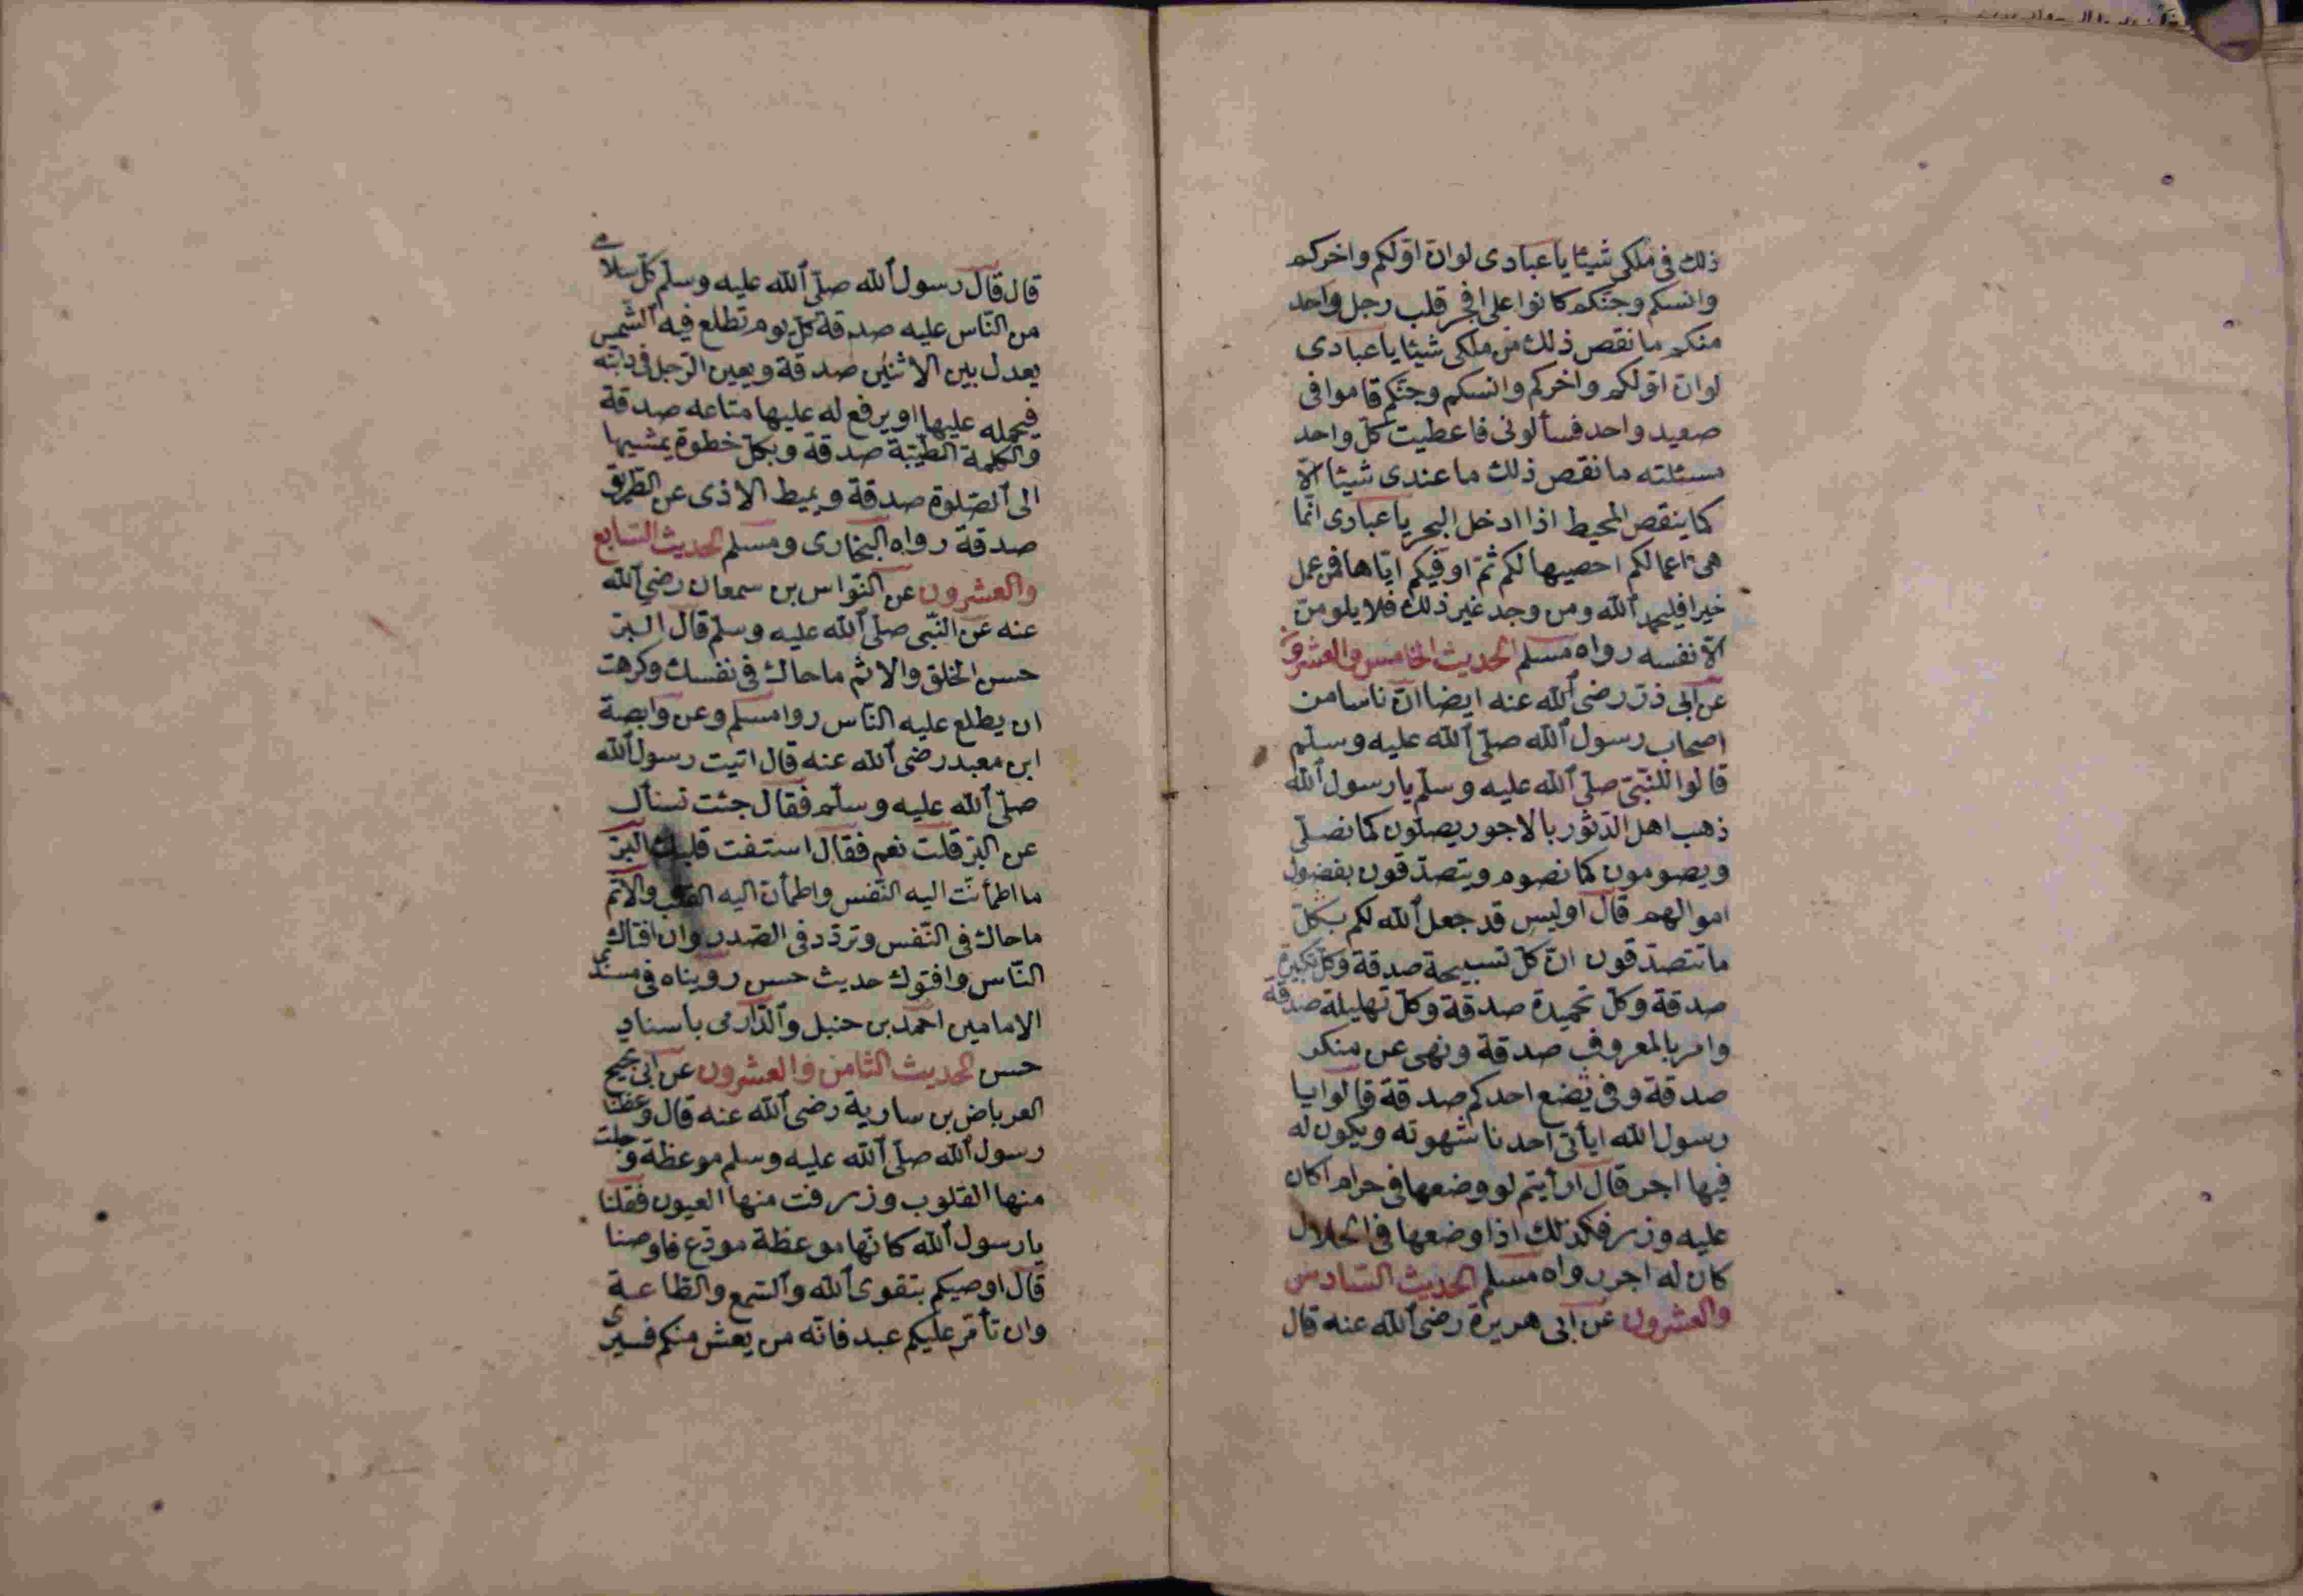 ذلك في ملكي شيئا يا عبادى لوان اوّلكم واخركم
وانسكم وجنكم كانوا على افجر قلب رجل واحد
منكم ما نقص ذلك من ملكي شيئا يا عبادى
لوان اوّلكم واخركم وانسكم وجنّكم قاموا فى
صعيد واحد فسألونى فاعطيت كلّ واحد
مسئلته ما نقص ذلك ما عندى شيئا الّا
كما ينقص المحيط اذا ادخل البحر يا عبادى انّما
هى اعمالكم احصيها لكم ثمّ اوفّيكم ايّاها فمن عمل
خيرا فليحمد الله ومن وجد غير ذلك فلا يلومنّ
الّا نفسه رواه مسلم الحديث الخامس والعشرون
عن ابى ذرّ رضى الله عنه ايضا انّ ناسا من
اصحاب رسول الله صلّى الله عليه وسلّم
قالوا للنّبىّ صلّى الله عليه وسلّم يا رسول الله
ذهب اهل الدّثور بالاجور يصلّون كما نصلّى
ويصومون كما نصوم ويتصدّقون بفضول
اموالهم قال اوليس قد جعل الله لكم بكلّ
ما تتصدّقون انّ كلّ تسبيحة صدقة وكلّ تكبيرة
صدقة وكلّ تحميدة صدقة وكلّ تهليلة صدقة
وامر بالمعروف صدقة ونهى عن منكر
صدقة وفى بضع احدكم صدقة قالوا يا
رسول الله ايأتى احدنا شهوته ويكون له
فيها اجر قال ارأيتم لو وضعها فى حرام اكان
عليه وزر فكذلك اذا وضعها فى الحلال
كان له اجر رواه مسلم الحديث السّادس
والعشرون عن ابى هريرة رضى الله عنه قال
قال قال رسول الله صلّى الله عليه وسلّم كلّ سلامى
من النّاس عليه صدقة كلّ يوم تطلع فيه الشّمس
يعدل بين الاثنين صدقة ويعين الرّجل فى دابّته
فيحمله عليها او يرفع له عليها متاعه صدقة
والكلمة الطّيّبة صدقة وبكلّ خطوة يمشيها
الى الصّلوة صدقة ويميط الاذى عن الطّريق
صدقة رواه البخارى ومسلم الحديث السّابع
والعشرون عن النّواس بن سمعان رضى الله
عنه عن النّبى صلّى الله عليه وسلّم قال البرّ
حسن الخلق والاثم ما حاك فى نفسك وكرهت
ان يطلع عليه النّاس روا مسلم وعن وابصة
ابن معبد رضى الله عنه قال اتيت رسول الله
صلّى الله عليه وسلّم فقال جئت تسأل
عن البرّ قلت نعم فقال استفت قلبك البرّ
ما اطمأنّت اليه النّفس واطمأن اليه القلب والاثم
ما حاك فى النّفس وتردّد فى الصّدر وان افتاك
النّاس وافتوك حديث حسن رويناه فى مسند
الامامين احمد بن حنبل والدّارمى باسناد
حسن الحديث الثامن والعشرون عن ابى نجيح
العرباض بن سارية رضى الله عنه قال وعظنا
رسول الله صلّى الله عليه وسلم موعظة وجلت
منها القلوب وذرفت منها العيون فقلنا
يا رسول الله كانّها موعظة مودّع فاوصنا
قال اوصيكم بتقوى الله والسّمع والطّاعة
وان تأمّر عليكم عبد فانّه من يعش منكم فسيرى